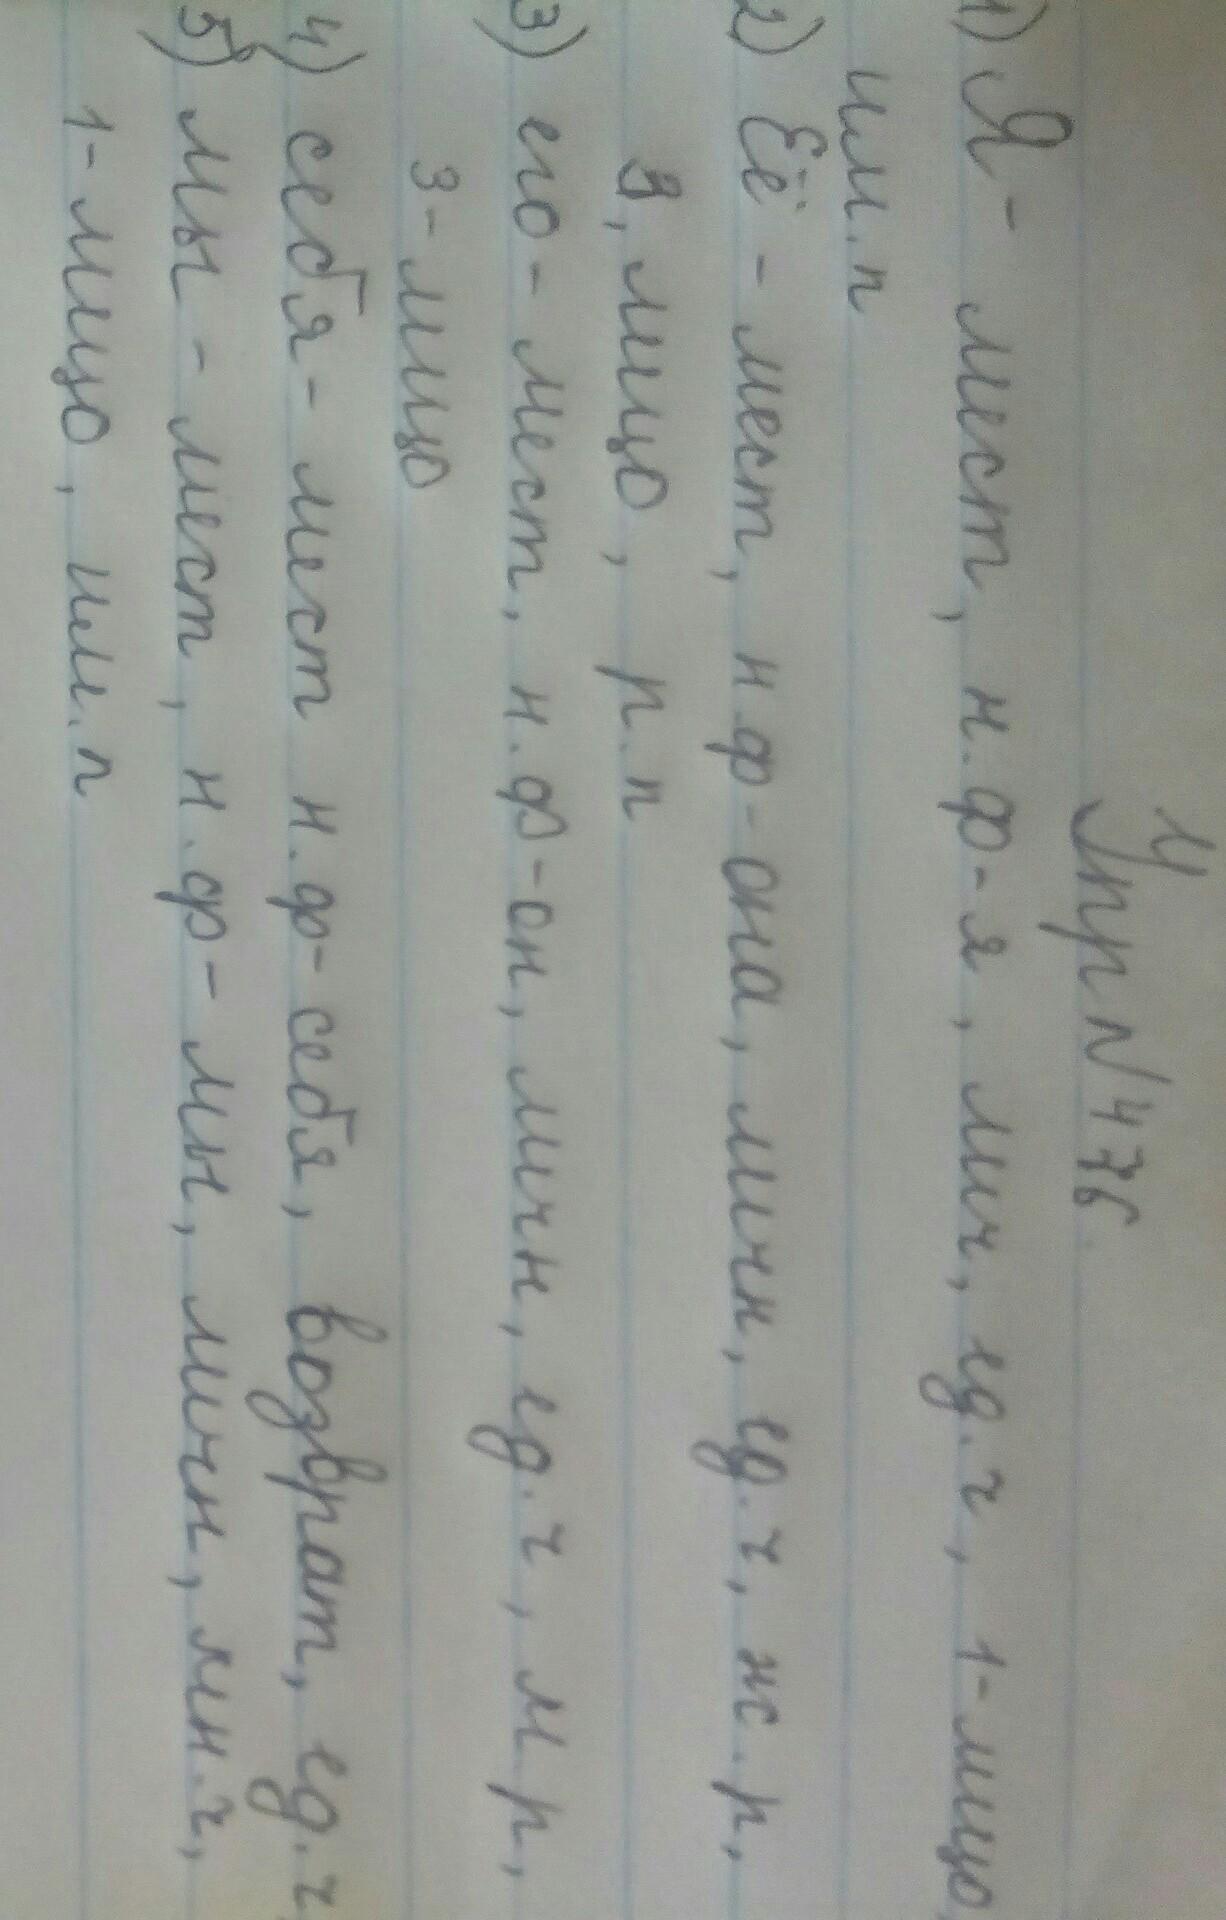 Упр N 476.
1) Я - мест, н.ф-я, лич, ед.ч, 1-лицо,
им.п
2) Её - мест, н.ф-она, личн, ед.ч, ж.р,
3, лицо, р.п
3) его - мест, н.ф-он, личн, ед.ч, м р,
3-лицо
4) себя - мест н.ф-себя, возврат, ед.ч,
5) мы - мест, н.ф- мы, личн, мн.ч,
1-лицо, им.п